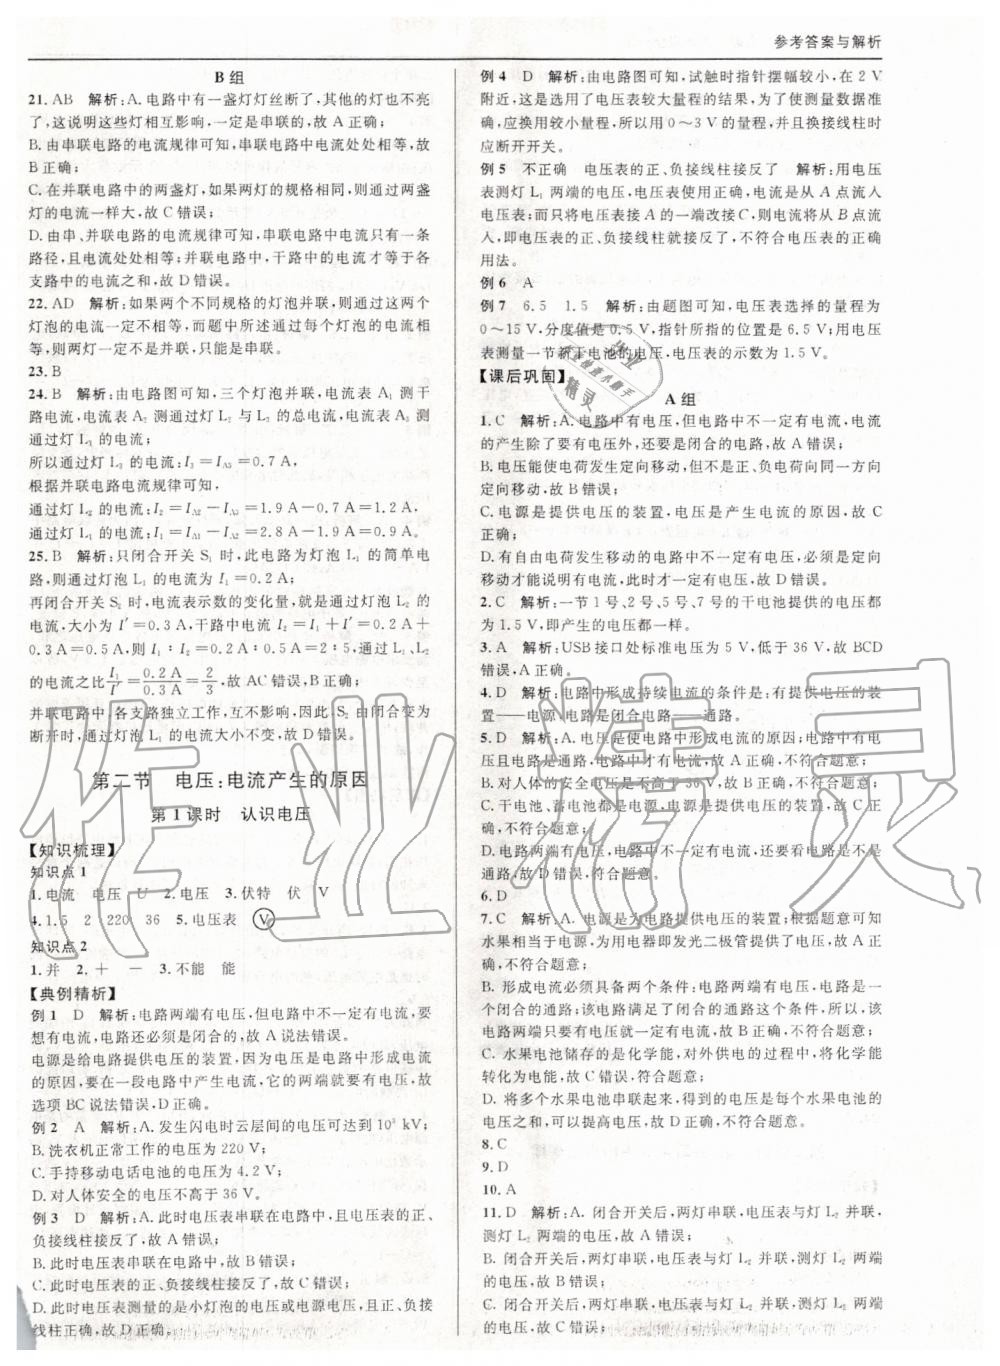 参考答案与解析
B 组
21. AB　解析:A. 电路中有一盏灯灯丝断了,其他的灯也不亮
了,这说明这些灯相互影响,一定是串联的,故 A 正确;
B. 由串联电路的电流规律可知,串联电路中电流处处相等,故
B 正确;
C. 在并联电路中的两盏灯,如果两灯的规格相同,则流过两盏
灯的电流一样大,故 C 错误;
D. 由串、并联电路的电流规律可知,串联电路中电流只有一条
路径,且电流处处相等;并联电路中,干路中的电流才等于各
支路中的电流之和,故 D 错误。
22. AD　解析:如果两个不同规格的灯泡并联,则流过这两个
灯泡的电流不相等,而题中所述通过每个灯泡的电流相
等,则两灯一定不是并联,只能是串联。
23. B
24. B　解析:由电路图可知,三个灯泡并联,电流表 A₁ 测干
路电流,电流表 A₂ 测通过灯 L₂ 与 L₃ 的总电流,电流表 A₃ 测
通过灯 L₃ 的电流;
所以通过灯 L₃ 的电流:I₃＝I_A3＝0.7 A,
根据并联电路电流规律可知,
通过灯 L₂ 的电流:I₂＝I_A2－I_A3＝1.9 A－0.7 A＝1.2 A,
通过灯 L₁ 的电流:I₁＝I_A1－I_A2＝2.8 A－1.9 A＝0.9 A。
25. B　解析:只闭合开关 S₁ 时,此电路为灯泡 L₁ 的简单电
路,则通过灯泡 L₁ 的电流为 I₁＝0.2 A;
再闭合开关 S₂ 时,电流表示数的变化量,就是通过灯泡 L₂ 的
电流,大小为 I′＝0.3 A,干路中电流 I₂＝I₁＋I′＝0.2 A＋
0.3 A＝0.5 A,则 I₁∶I₂＝0.2 A∶0.5 A＝2∶5,通过 L₁、L₂
的电流之比 I₁/I′＝0.2 A/0.3 A＝2/3,故 AC 错误,B 正确;
并联电路中,各支路独立工作,互不影响,因此,S₂ 由闭合变为
断开时,通过灯泡 L₁ 的电流大小不变,故 D 错误。
第二节　电压:电流产生的原因
第 1 课时　认识电压
【知识梳理】
知识点 1
1. 电流　电压　U　2. 电压　3. 伏特　伏　V
4. 1.5　2　220　36　5. 电压表　V
知识点 2
1. 并　2. ＋　－　3. 不能　能
【典例精析】
例 1　D　解析:电路两端有电压,但电路中不一定有电流,要
想有电流,电路还必须是闭合的,故 A 说法错误。
电源是给电路提供电压的装置,因为电压是电路中形成电流
的原因,要在一段电路中产生电流,它的两端就要有电压,故
选项 BC 说法错误,D 正确。
例 2　A　解析:A. 发生闪电时云层间的电压可达到 10³ kV;
B. 洗衣机正常工作的电压为 220 V;
C. 手持移动电话电池的电压为 4.2 V;
D. 对人体安全的电压不高于 36 V。
例 3　D　解析:A. 此时电压表串联在电路中,且电压表的正、
负接线柱接反了,故 A 错误;
B. 此时电压表串联在电路中,故 B 错误;
C. 此时电压表的正、负接线柱接反了,故 C 错误;
D. 此时电压表测量的是小灯泡的电压或电源电压,且正、负接
线柱正确,故 D 正确。
例 4　D　解析:由电路图可知,试触时指针摆幅较小,在 2 V
附近,这是选用了电压表较大量程的结果,为了使测量数据准
确,应换用较小量程,所以用 0～3 V 的量程,并且换接线柱时
应断开开关。
例 5　不正确　电压表的正、负接线柱接反了　解析:用电压
表测灯 L₁ 两端的电压,电压表使用正确,电流是从 A 点流入
电压表;而只将电压表接 A 的一端改接 C,则电流将从 B 点流
入,即电压表的正、负接线柱就接反了,不符合电压表的正确
用法。
例 6　A
例 7　6.5　1.5　解析:由题图可知,电压表选择的量程为
0～15 V,分度值是 0.5 V,指针所指的位置是 6.5 V;用电压
表测量一节新干电池的电压,电压表的示数为 1.5 V。
【课后巩固】
A 组
1. C　解析:A. 电路中有电压,但电路中不一定有电流,电流
的产生除了要有电压外,还要是闭合的电路,故 A 错误;
B. 电压能使电荷发生定向移动,但不是正、负电荷向同一方向
定向移动,故 B 错误;
C. 电源是提供电压的装置,电压是产生电流的原因,故 C
正确;
D. 有自由电荷发生移动的电路中不一定有电压,必须是定向
移动才能说明有电流,此时才一定有电压,故 D 错误。
2. C　解析:一节 1 号、2 号、5 号、7 号的干电池提供的电压都
为 1.5 V,即产生的电压都一样。
3. A　解析:USB 接口处标准电压为 5 V,低于 36 V,故 BCD
错误,A 正确。
4. D　解析:电路中形成持续电流的条件是:有提供电压的装
置——电源,电路是闭合电路——通路。
5. D　解析:A. 电压是使电路中形成电流的原因,电路中有电
压且电路是通路时,电路中才有电流,不符合题意;
B. 对人体安全的电压为不高于 36 V 的电压,不符合题意;
C. 干电池、蓄电池都是电源,电源是提供电压的装置,不是用
电器,不符合题意;
D. 电路两端有电压,不一定有电流,还要看电路是不是
通路,故说法错误,符合题意。
6. D
7. C　解析:A. 电源是为电路提供电压的装置;根据题意可知
水果相当于电源,为用电器即发光二极管提供了电压,故 A 正
确,不符合题意;
B. 形成电流必须具备两个条件:电路两端有电压,电路是一
个闭合的通路;该电路满足了闭合的通路这个条件,所以,该
电路两端只要有电压就一定有电流,故 B 正确,不符合题意;
C. 水果电池储存的是化学能,对外供电的过程中,将化学能
转化为电能,故 C 错误,符合题意;
D. 将多个水果电池串联起来,得到的电压是每个水果电池的
电压之和,可以提高电压,故 D 正确,不符合题意。
8. C
9. D
10. A
11. D　解析:A. 闭合开关后,两灯串联,电压表与灯 L₂ 并联,
测灯 L₂ 两端的电压,故 A 错误;
B. 闭合开关后,两灯串联,电压表与灯 L₂ 并联,测灯 L₂ 两端
的电压,故 B 错误;
C. 闭合开关后,两灯串联,电压表与灯 L₂ 并联,测灯 L₂ 两端
的电压,故 C 错误;
作业精灵